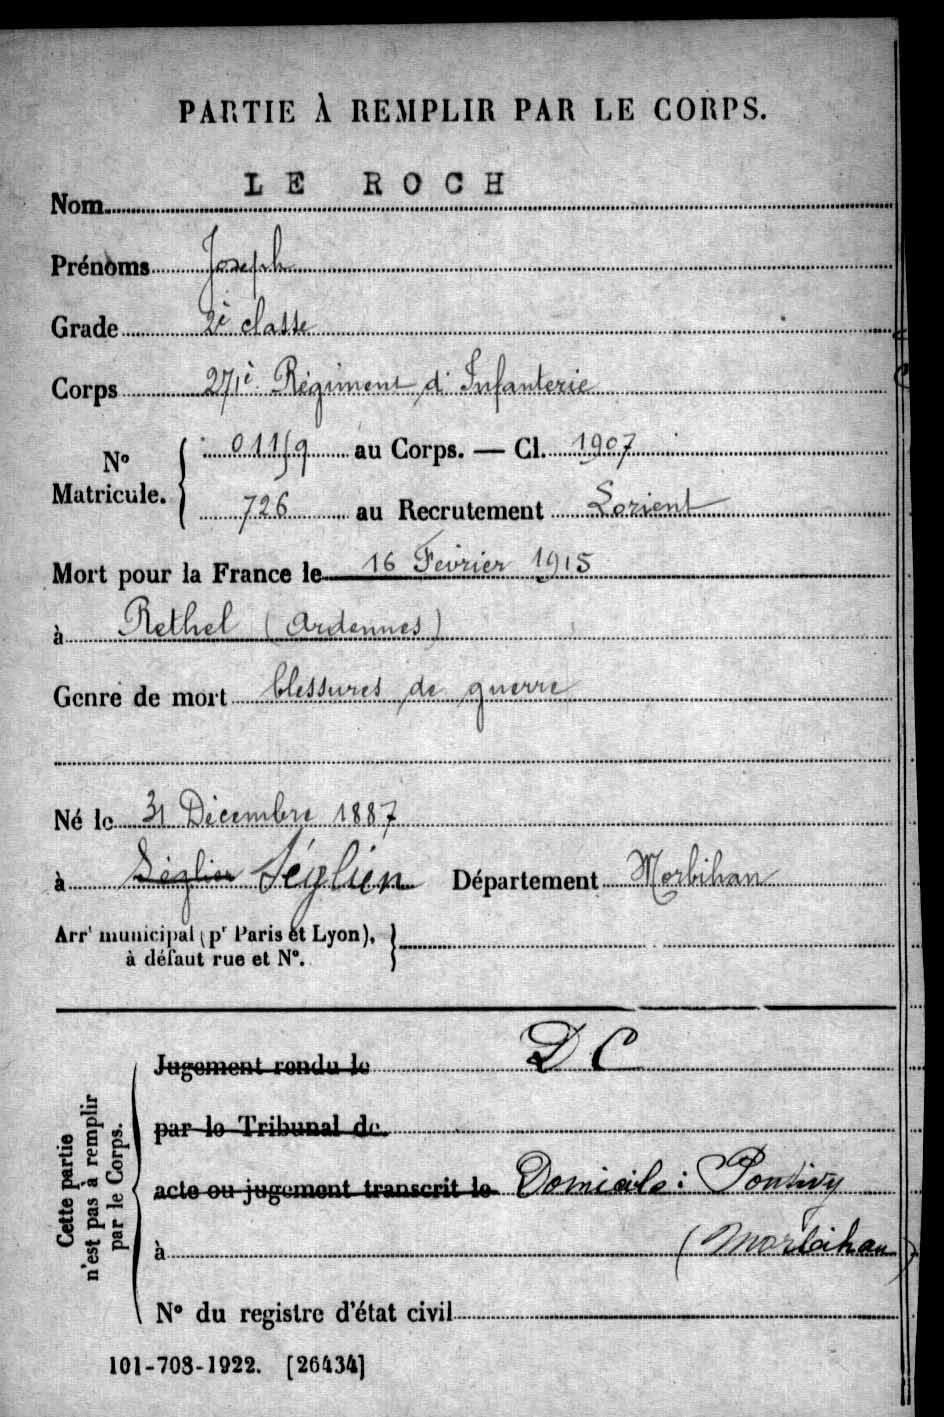 PARTIE À REMPLIR PAR LE CORPS.
Nom LE ROCH
Prénoms Joseph
Grade 2è classe
Corps 271è Régiment d'Infanterie
N° Matricule. 01159 au Corps. — Cl. 1907
726 au Recrutement Lorient
Mort pour la France le 16 Février 1915
à Rethel (Ardennes)
Genre de mort blessures de guerre
Né le 31 Décembre 1887
à Séglien Séglien Département Morbihan
Arrt municipal (pr Paris et Lyon),
à défaut rue et N°.
Cette partie
n'est pas à remplir
par le Corps.
Jugement rendu le DC
par le Tribunal de
acte ou jugement transcrit le Domicile : Pontivy
à (Morbihan)
N° du registre d'état civil
101-708-1922. [26434]